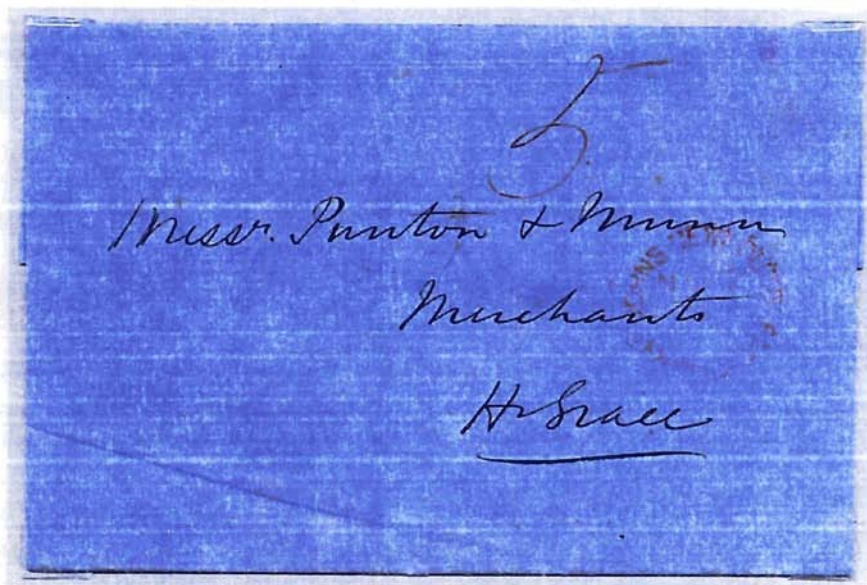 5
Messr. Punton & Munn
Merchants
Hr Grace